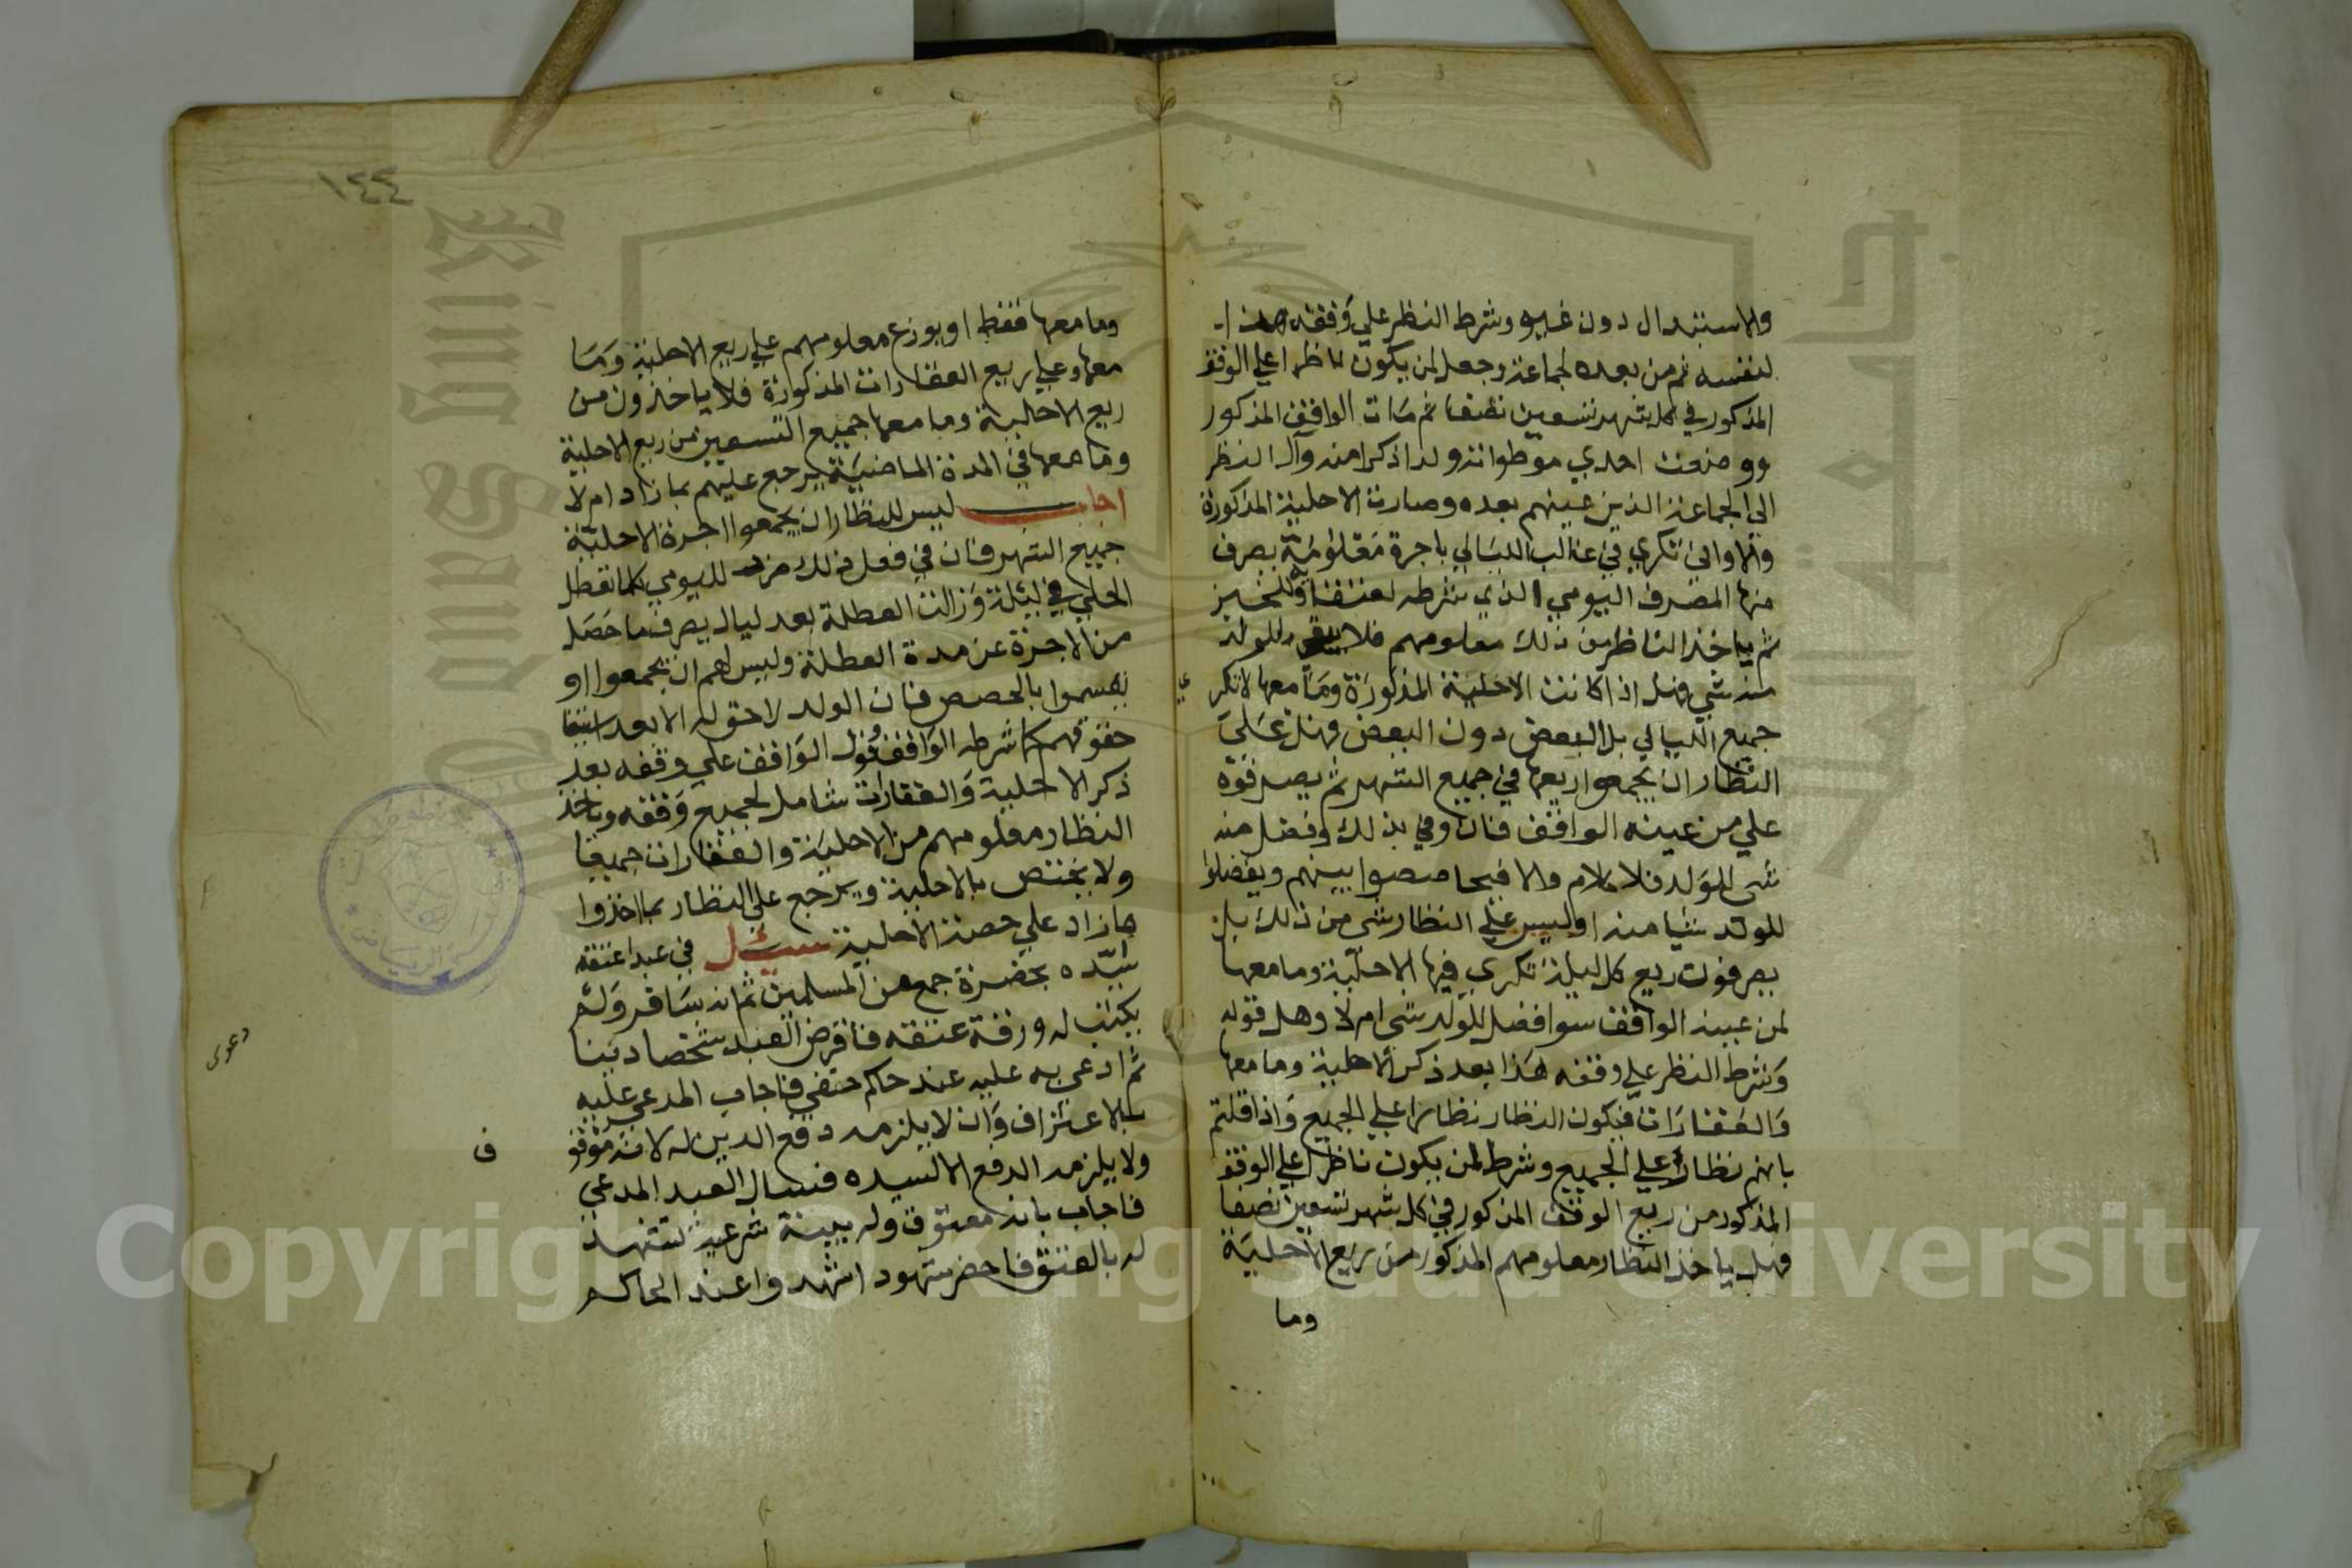 والاستبدال دون غيره وشرط النظر علي وقفه هذا
لنفسه ثم من بعده لجماعة وجعل لمن يكون ناظرا علي الوقف
المذكور في كل شهر تسعين نصفا ثم مات الواقف المذكور
ووضعت احدي موطواته ولدا ذكرا منه وآل النظر
الي الجماعة الذين عينهم بعده وصارت الاحلية المذكورة
والاواني تكري في غالب الليالي باجرة معلومة يصرف
منها المصرف اليومي الذي شرطه لعتقا وللخبز
ثم ياخذ الناظر من ذلك معلومهم فلا يبقي للولد
منه شي فهل اذا كانت الاحلية المذكورة وما معها لا تكر
ي
جميع الليالي بل البعض دون البعض فهل علي
النظار ان يجمعوا ريعها في جميع الشهر ثم يصرفوه
علي من عينه الواقف فان وفي بذلك وفضل منه
شي للولد فلا كلام والا فيحاصصوا بينهم ويفضلوا
للولد شيا منه اوليس علي النظار شي من ذلك بل
يصرفون ريع كل ليلة تكري فيها الاحلية وما معها
لمن عينه الواقف سوا فضل للولد شي ام لا وهل قوله
وشرط النظر علي وقفه هذا بعد ذكر الاحلية وما معها
والعقارات فيكون النظار نظارا علي الجميع واذا قلتم
بانهم نظار علي الجميع وشرط لمن يكون ناظرا علي الوقف
المذكور من ريع الوقف المذكور في كل شهر تسعين نصفا
فهل ياخذ النظار معلومهم المذكور من ريع الاحلية
وما
١٤٤
وما معها فقط او يوزع معلومهم علي ريع الاحلية وما
معها وعلي ريع العقارات المذكورة فلا ياخذون من
ريع الاحلية وما معها جميع التسعين من ريع الاحلية
وما معها في المدة الماضية يرجع عليهم بما زاد ام لا
اجاب ليس للنظار ان يجمعوا اجرة الاحلية
جميع الشهر فان في فعل ذلك لليومي كلما تعطل
الحلي في ليلة وزالت العطلة بعد ليال يصرف ما حصل
من الاجرة عن مدة العطلة وليس لهم ان يجمعوا او
يقسموا بالحصص فان الولد لا حق له الا بعد استيفا
حقوقهم كما شرطه الواقف قول الواقف علي وقفه بعد
ذكر الاحلية والعقارات شامل لجميع وقفه وياخذ
النظار معلومهم من الاحلية والعقارات جميعا
ولا يختص بالاحلية ويرجع علي النظار بما اخذوا
مازاد علي حصة الاحلية سئل في عبد اعتقه
سيده بحضرة جمع من المسلمين ثم انه سافر ولم
يكتب له ورقة عتقه فاقرض العبد شخصا دينا
دعوى
ثم ادعي به عليه عند حاكم حنفي فاجاب المدعي عليه
بالاعتراف وان لا يلزمه دفع الدين له لانه مرقوق
ف
ولا يلزمه الدفع الا لسيده فسال العبد المدعي
فاجاب بانه معتوق وله بينة شرعية تشهد
له بالعتق فاحضر شهود اشهدوا عند الحاكم
Copyright © King Saud University